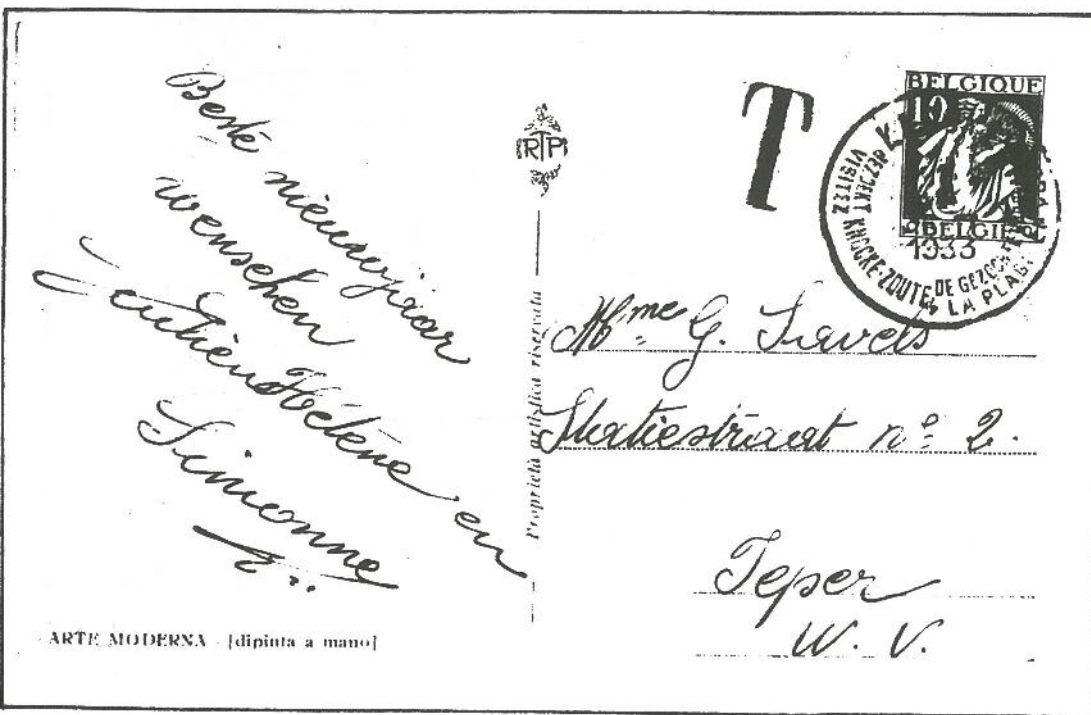 Beste nieuwjaar
wenschen
Hélène en
Simonne
ARTE MODERNA - [dipinta a mano]
RTP
Proprietà artistica riservata
T
BELGIQUE
10
BELGIË
1933
BEZOEKT KNOCKE-ZOUTE DE
VISITEZ LA PLAGE
Mme G.
Statiestraat nº 2.
Ieper
W. V.